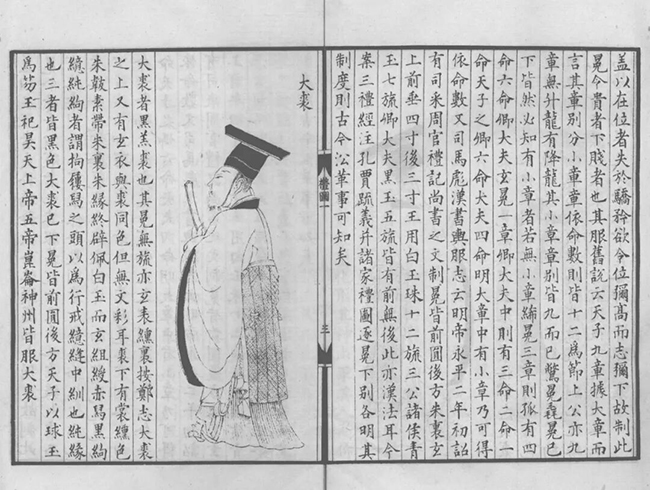 蓋以在位者失於驕矜欲令位彌高而志彌下故制此
冕令貴者下賤者也其服舊說云天子九章據大章而
言其章別分小章章依命數則皆十二為節上公亦九
章無升龍有降龍其小章章別皆九而已鷩冕毳冕已
下皆然必知有小章者若無小章絺冕三章則孤有四
命六命卿大夫玄冕一章卿大夫中則有三命二命一
命天子之卿六命大夫四命明大章中有小章乃可得
依命數又司馬彪漢書輿服志云明帝永平二年初詔
有司采周官禮記尚書之文制冕皆前圓後方朱裏玄
上前垂四寸後三寸王用白玉珠十二旒三公諸侯青
玉七旒卿大夫黑玉五旒皆有前無後此亦漢法耳今
案三禮經注孔賈疏義并諸家禮圖逐冕下別各明其
制度則古今沿革事可知矣
禮圖一
三
大裘
大裘者黑羔裘也其冕無旒亦玄表纁裏按鄭志大裘
之上又有玄衣與裘同色但無文彩耳裘下有裳纁色
朱韍素帶朱裏朱緣終辟佩白玉而玄組綬赤舄黑絇
繶純絇者謂拘屨舄之頭以為行戒繶縫中紃也純緣
也三者皆黑色大裘已下冕皆前圓後方天子以球玉
為笏王祀昊天上帝五帝崑崙神州皆服大裘